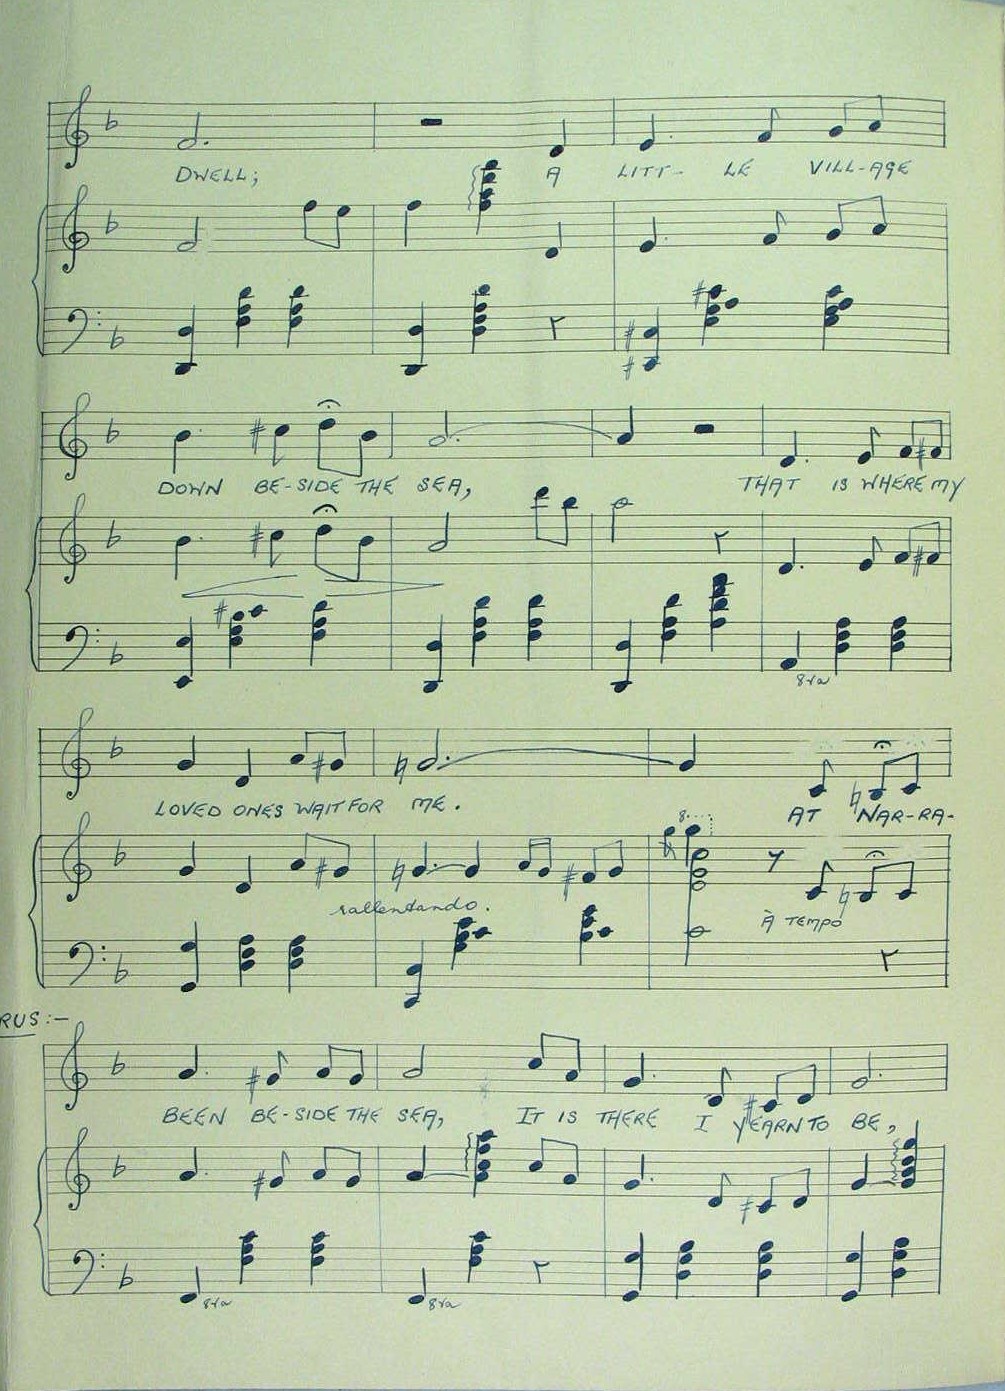 DWELL; A LITT- LE VILL-AGE
DOWN BE-SIDE THE SEA, THAT IS WHERE MY
8va
LOVED ONES WAIT FOR ME. AT NAR-RA-
8
rallentando. À TEMPO
RUS:-
BEEN BE-SIDE THE SEA, IT IS THERE I YEARN TO BE,
8va 8va